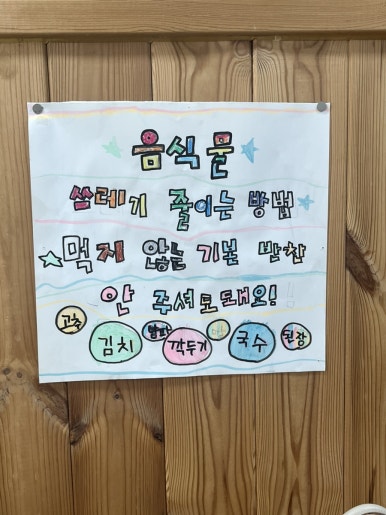 음식물
쓰레기 줄이는 방법
먹지 않는 기본 반찬
안 주셔도돼요!!
고추 김치 깍두기 국수 된장